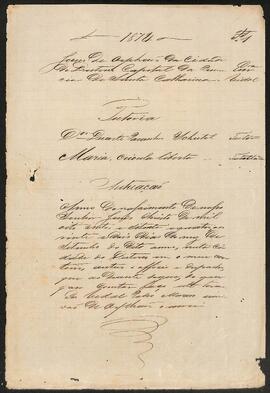 1874
Juizo de Orphãos da Cidade
do Desterro Capital da Provin
cia de Santa Catharina
Tutoria
Dor Duarte Paranhos Schutel Tutor
Maria, crioula liberta Tutellada
Autuação
Anno do Nascimento de Nosso
Senhor Jesus Christo de mil
oito centos e setenta e quatro, aos
vinte e seis dias do mez de
Setembro do dito anno, nesta Ci
dade do Desterro em o meu car
torio, autuei o officio e despacho,
que ao diante segue, do que
para constar faço este termo.
Eu Vidal Pedro Moraes escri
vão de Orphãos o escrevi